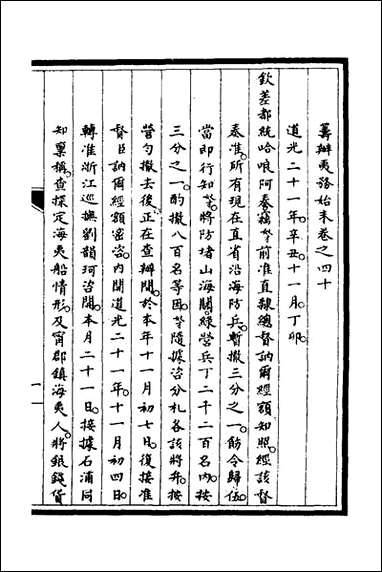 籌辦夷務始末卷之四十
道光二十一年。辛丑。十一月。丁卯。
欽差都統哈哴阿奏竊等前准直隸總督訥爾經額知照。經該督
奏准。所有現在直省沿海防兵。暫撤三分之一。飭令歸伍。
當即行知。等將防堵山海關綠營兵丁二千二百名內。按
三分之一。酌撤八百名等因。等隨據咨分札各該將弁。按
營勻撤去後。正在查辦間。於本年十一月初七日。復接准
督臣訥爾經額密咨。內開道光二十一年。十一月初四日。
轉准浙江巡撫劉韻珂咨開。本月二十一日。接據石浦同
知稟稱。查探定海夷船情形。及甯郡鎮海夷人。將銀錢貨
一